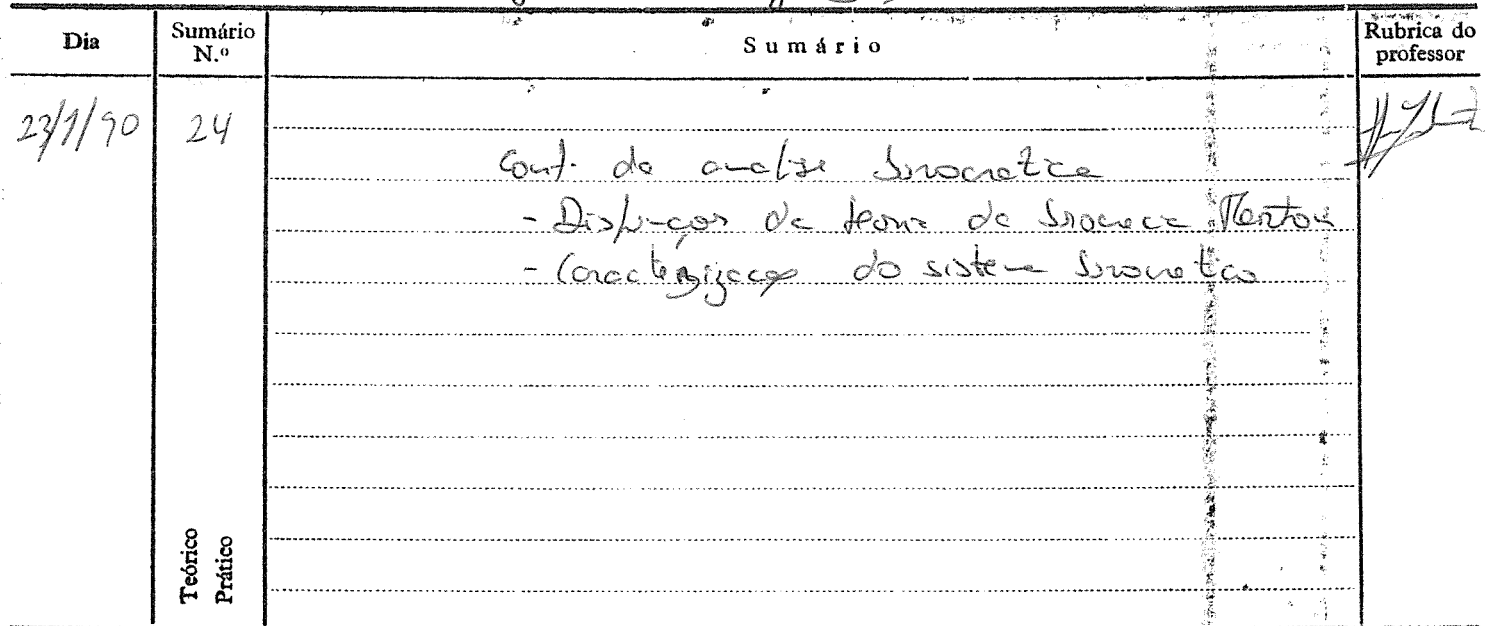 Dia
Sumário N.º
Sumário
Rubrica do professor
23/1/90
24
Cont. da analise burocratica
- Disfunções da teoria da burocracia Merton
- Caracterização do sistema burocratico
Teórico
Prático